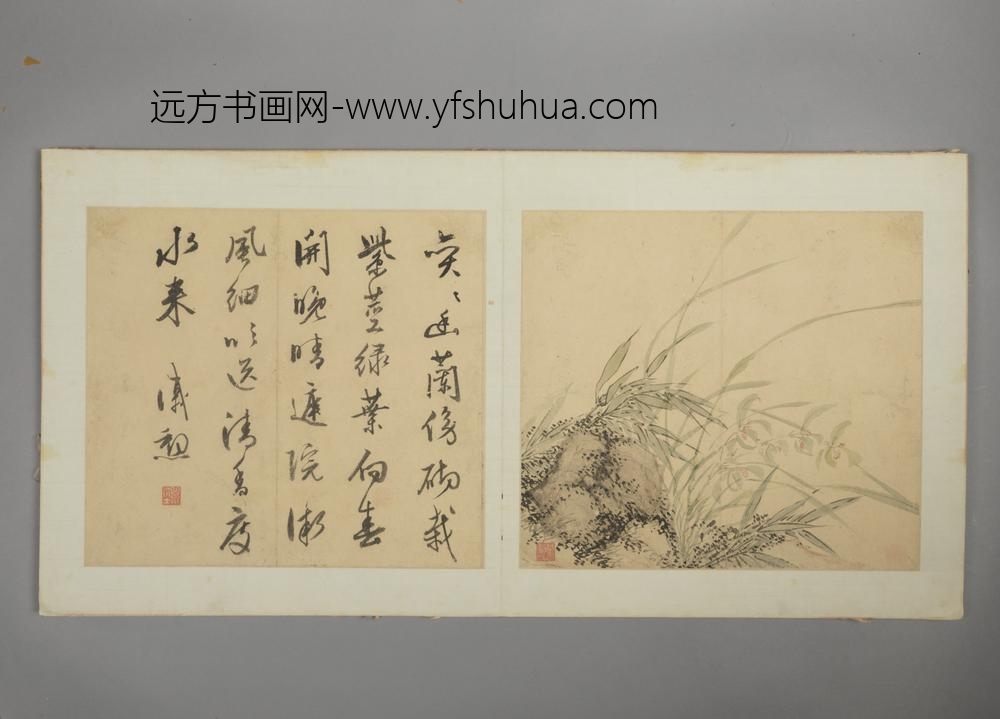 远方书画网-www.yfshuhua.com
奕〻幽蘭傍砌栽
紫莖綠葉向春
開晚晴庭院微
風細吹送清香度
水来